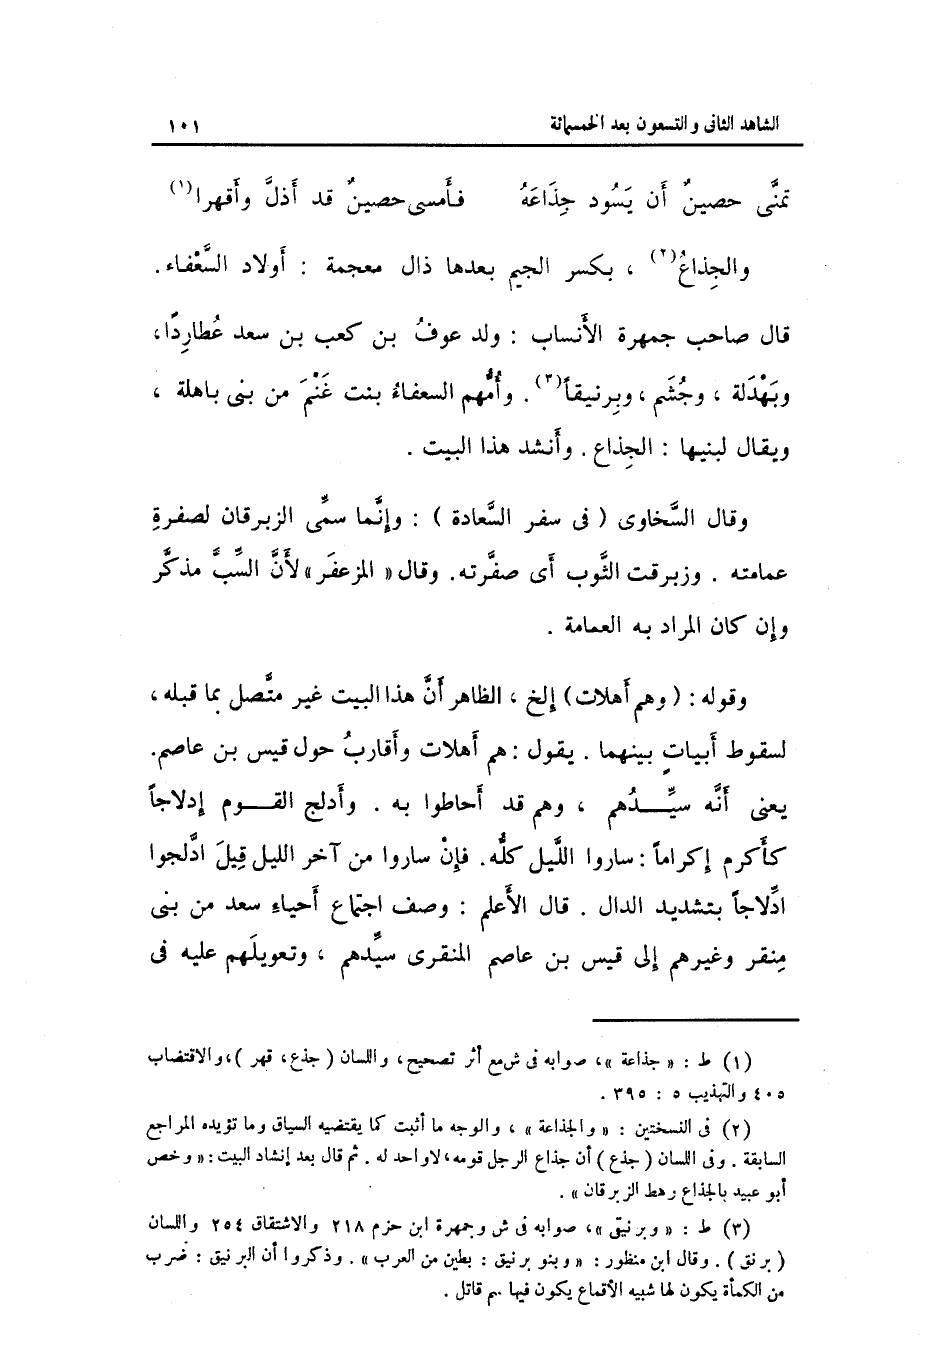 الشاهد الثانى والتسعون بعد الخمسمائة ١٠١
تمنَّى حصينٌ أن يَسُود جِذَاعَهُ فأَمسى حصينٌ قد أَذلَّ وأَقهرا(١)
والجِذاعُ(٢) ، بكسر الجيم بعدها ذال معجمة : أَولاد السَّعْفاء .
قال صاحب جمهرة الأَنساب : ولد عوفُ بن كعب بن سعد عُطارِدًا ،
وبَهْدَلة ، وجُشَم ، وبِرنيقاً(٣) . وأُمُّهم السعفاءُ بنت غَنْمَ من بنى باهلة ،
ويقال لبنيها : الجِذاع . وأَنشد هذا البيت .
وقال السَّخاوى ( فى سفر السَّعادة ) : وإِنَّما سمِّى الزبرقان لصفرةِ
عمامته . وزبرقت الثَّوب أَى صفَّرته . وقال « المزعفَر » لأَنَّ السِّبَّ مذكَّر
وإِن كان المراد به العمامة .
وقوله : ( وهم أَهلات ) إِلخ ، الظاهر أَنَّ هذا البيت غير متَّصل بما قبله ،
لسقوط أَبياتٍ بينهما . يقول : هم أَهلات وأَقاربُ حول قيس بن عاصم .
يعنى أَنَّه سيِّـدُهم ، وهم قد أَحاطوا به . وأَدلج القـوم إِدلاجاً
كأَكرم إِكراماً : ساروا اللَّيل كلُّه . فإِنْ ساروا من آخر الليل قِيلَ ادَّلجوا
ادِّلاجاً بتشديد الدال . قال الأَعلم : وصف اجتماع أَحياءِ سعد من بنى
مِنقر وغيرهم إِلى قيس بن عاصم المنقرى سيِّدهم ، وتعويلَهم عليه فى
(١) ط : « جذاعة » ، صوابه فى ش مع أثر تصحيح ، واللسان ( جذع ، قهر ) ، والاقتضاب
٤٠٥ والتهذيب ٥ : ٣٩٥ .
(٢) فى النسختين : « والجذاعة » ، والوجه ما أثبت كما يقتضيه السياق وما تؤيده المراجع
السابقة . وفى اللسان ( جذع ) أن جذاع الرجل قومه ، لا واحد له . ثم قال بعد إنشاد البيت : « وخص
أبو عبيد بالجذاع رهط الزبرقان » .
(٣) ط : « وبرنيق » ، صوابه فى ش وجمهرة ابن حزم ٢١٨ والاشتقاق ٢٥٤ واللسان
( برنق ) . وقال ابن منظور : « وبنو برنيق : بطين من العرب » . وذكروا أن البرنيق : ضرب
من الكمأة يكون لها شبيه الأقماع يكون فيها سم قاتل .